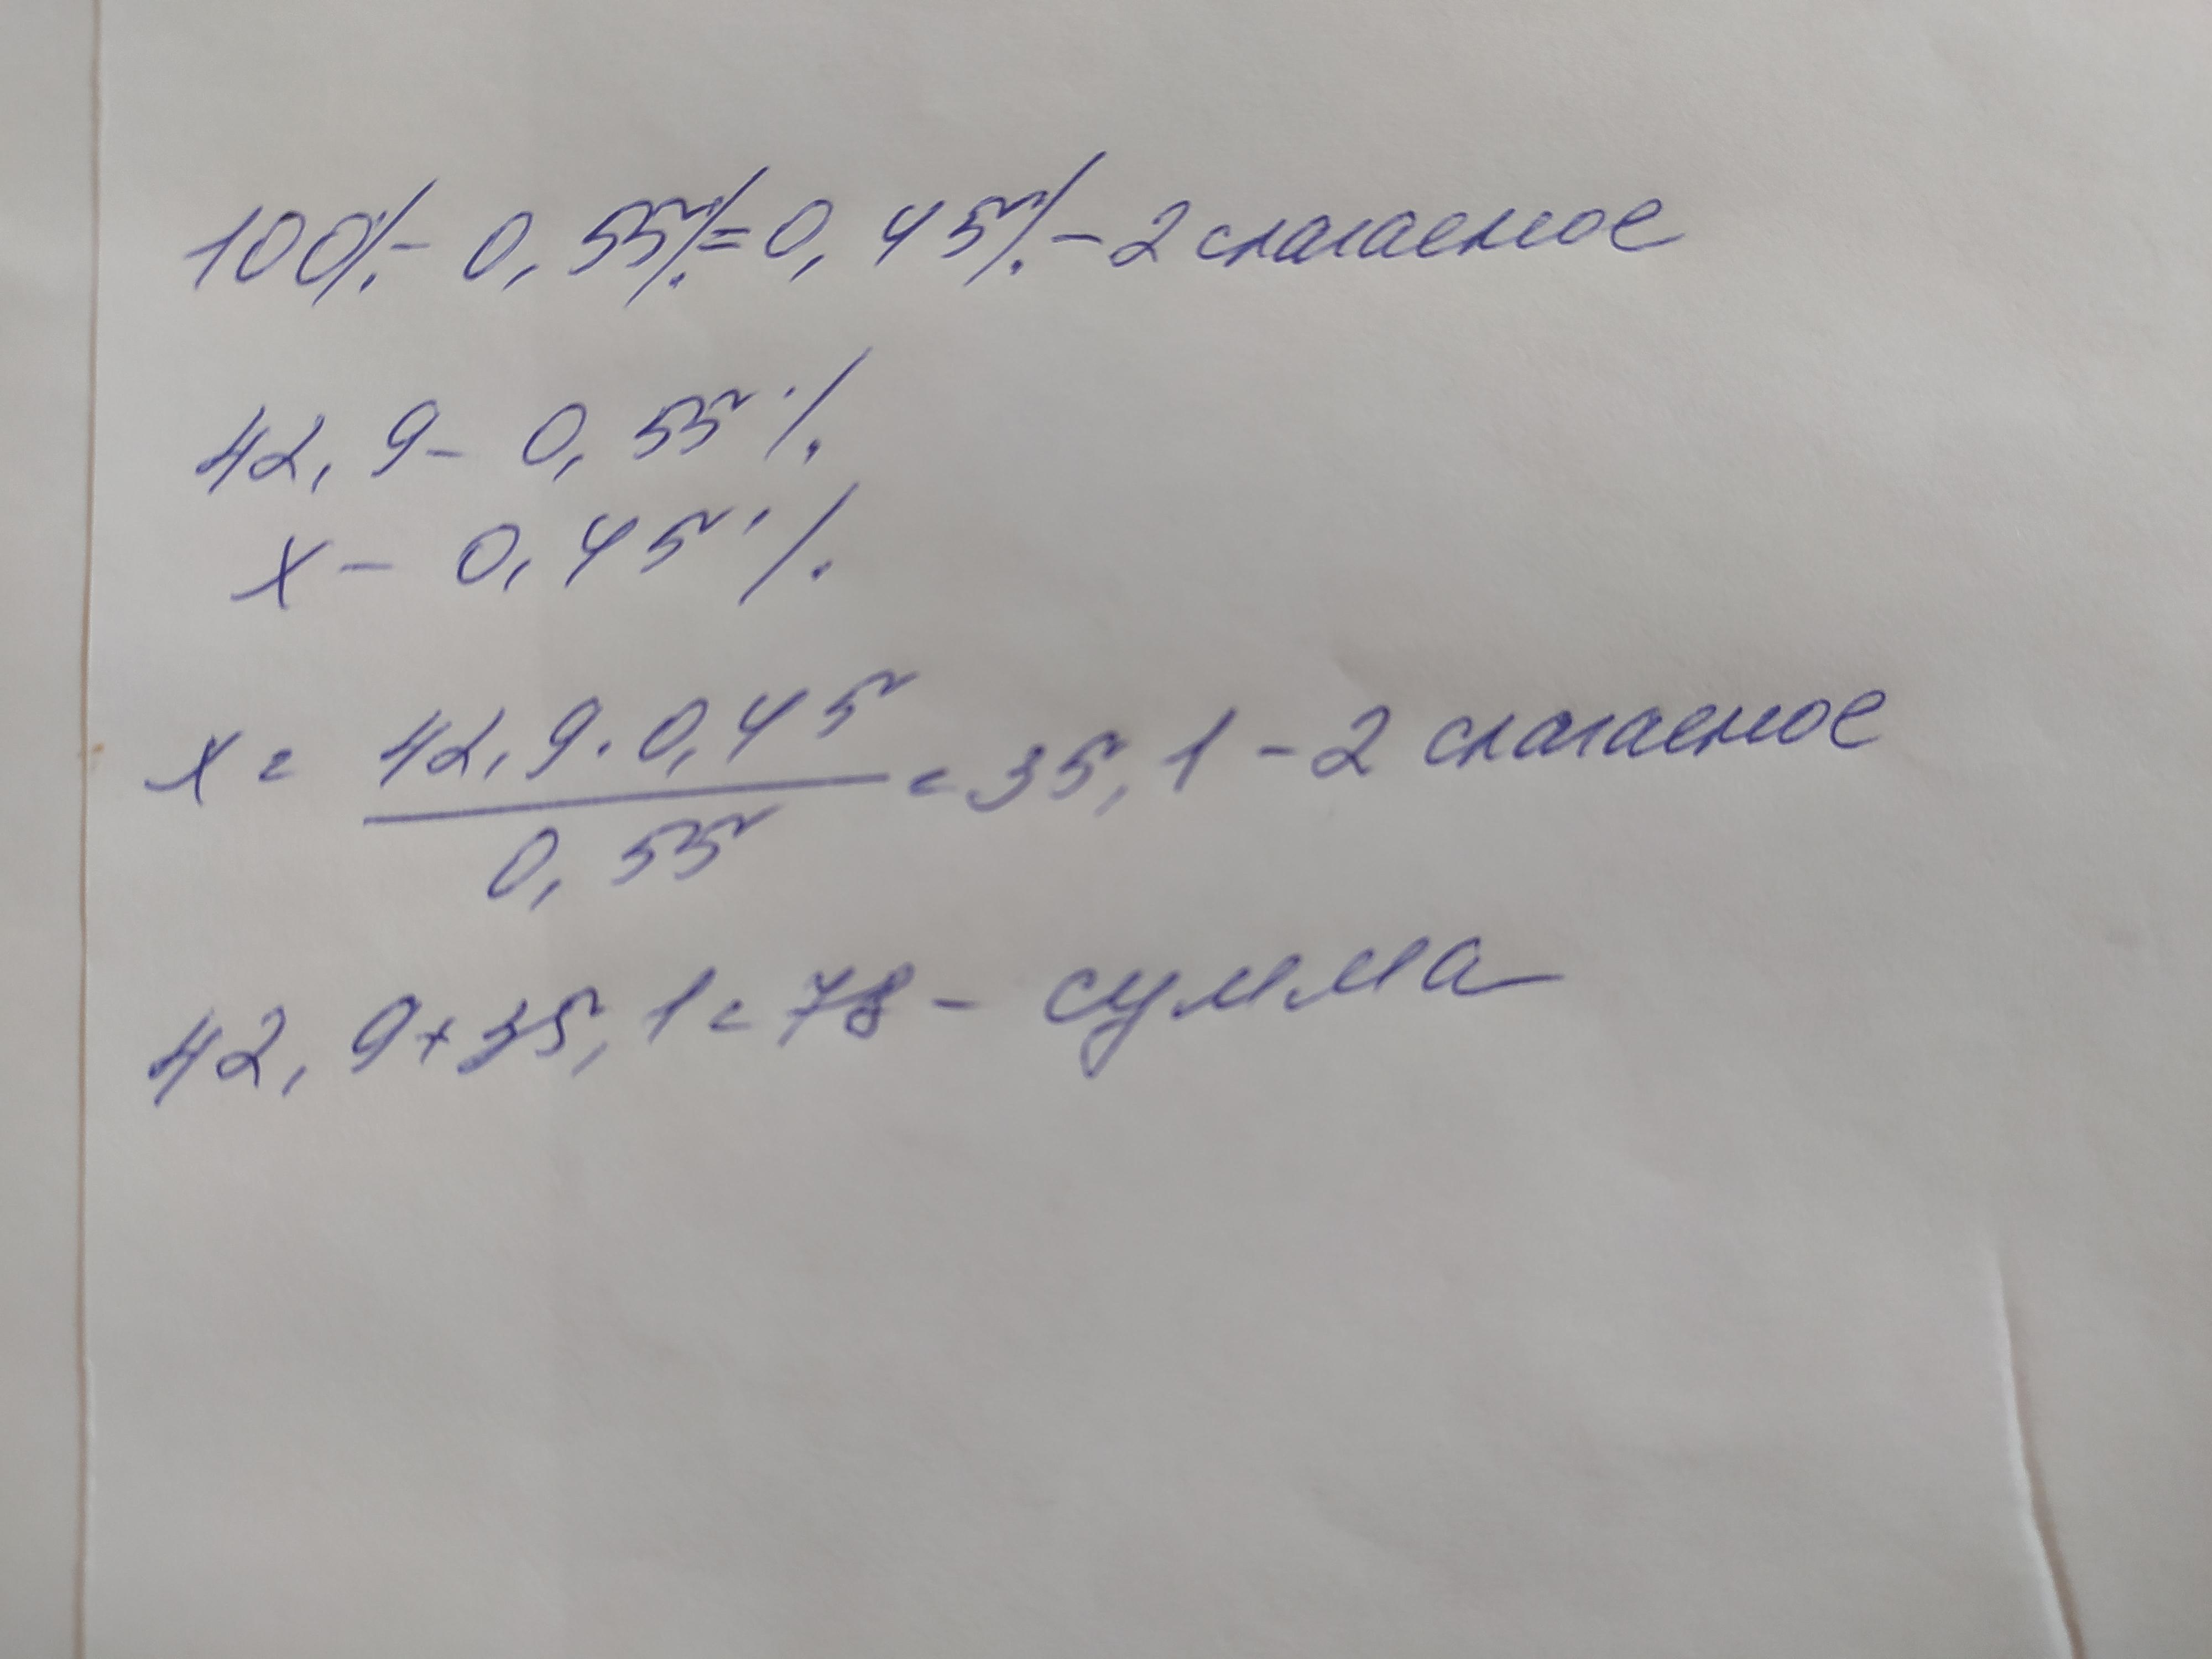 100% - 0,55% = 0,45% - 2 слагаемое
42,9 - 0,55%
х - 0,45%
х = 42,9 · 0,45 / 0,55 = 35,1 - 2 слагаемое
42,9 + 35,1 = 78 - сумма